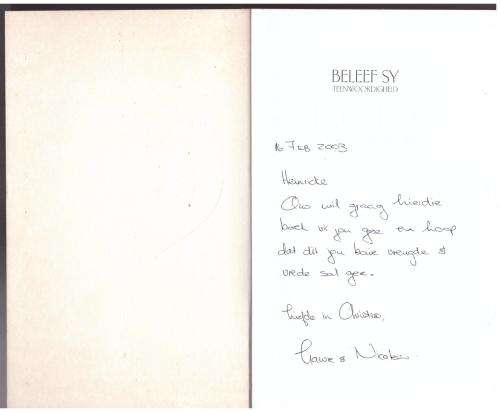 BELEEF SY
TEENWOORDIGHEID
16 Feb 2003
Hannicke
Ons wil graag hierdie
boek vir jou gee en hoop
dat dit jou baie vreugde &
vrede sal gee.
Liefde in Christus,
&